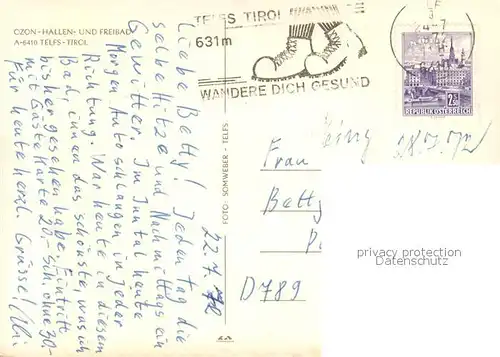 OZON-HALLEN- UND FREIBAD
A-6410 TELFS-TIROL
TELFS TIROL
631m
WANDERE DICH GESUND
2S
REPUBLIK ÖSTERREICH
22.7.72
Liebe Betty! Jeden Tag die
selbe Hitze und Nachmittags ein
Gewitter. Im Inntal heute
Morgen Autoschlangen in jeder
Richtung. War heute in diesem
Bad, innen das schönste, was ich
bisher gesehen habe. Eintritt
mit Gästekarte 20.- Sch. ohne 30.-
Für heute herzl. Grüsse!
FOTO: SOMWEBER - TELFS
28.7.72
Frau
Betty
D 789
privacy protection
Datenschutz